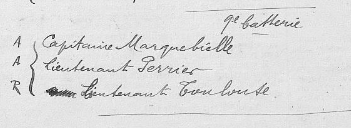 9e batterie
A Capitaine Marquebielle
A Lieutenant Perrier
R Lieutenant Toulouse